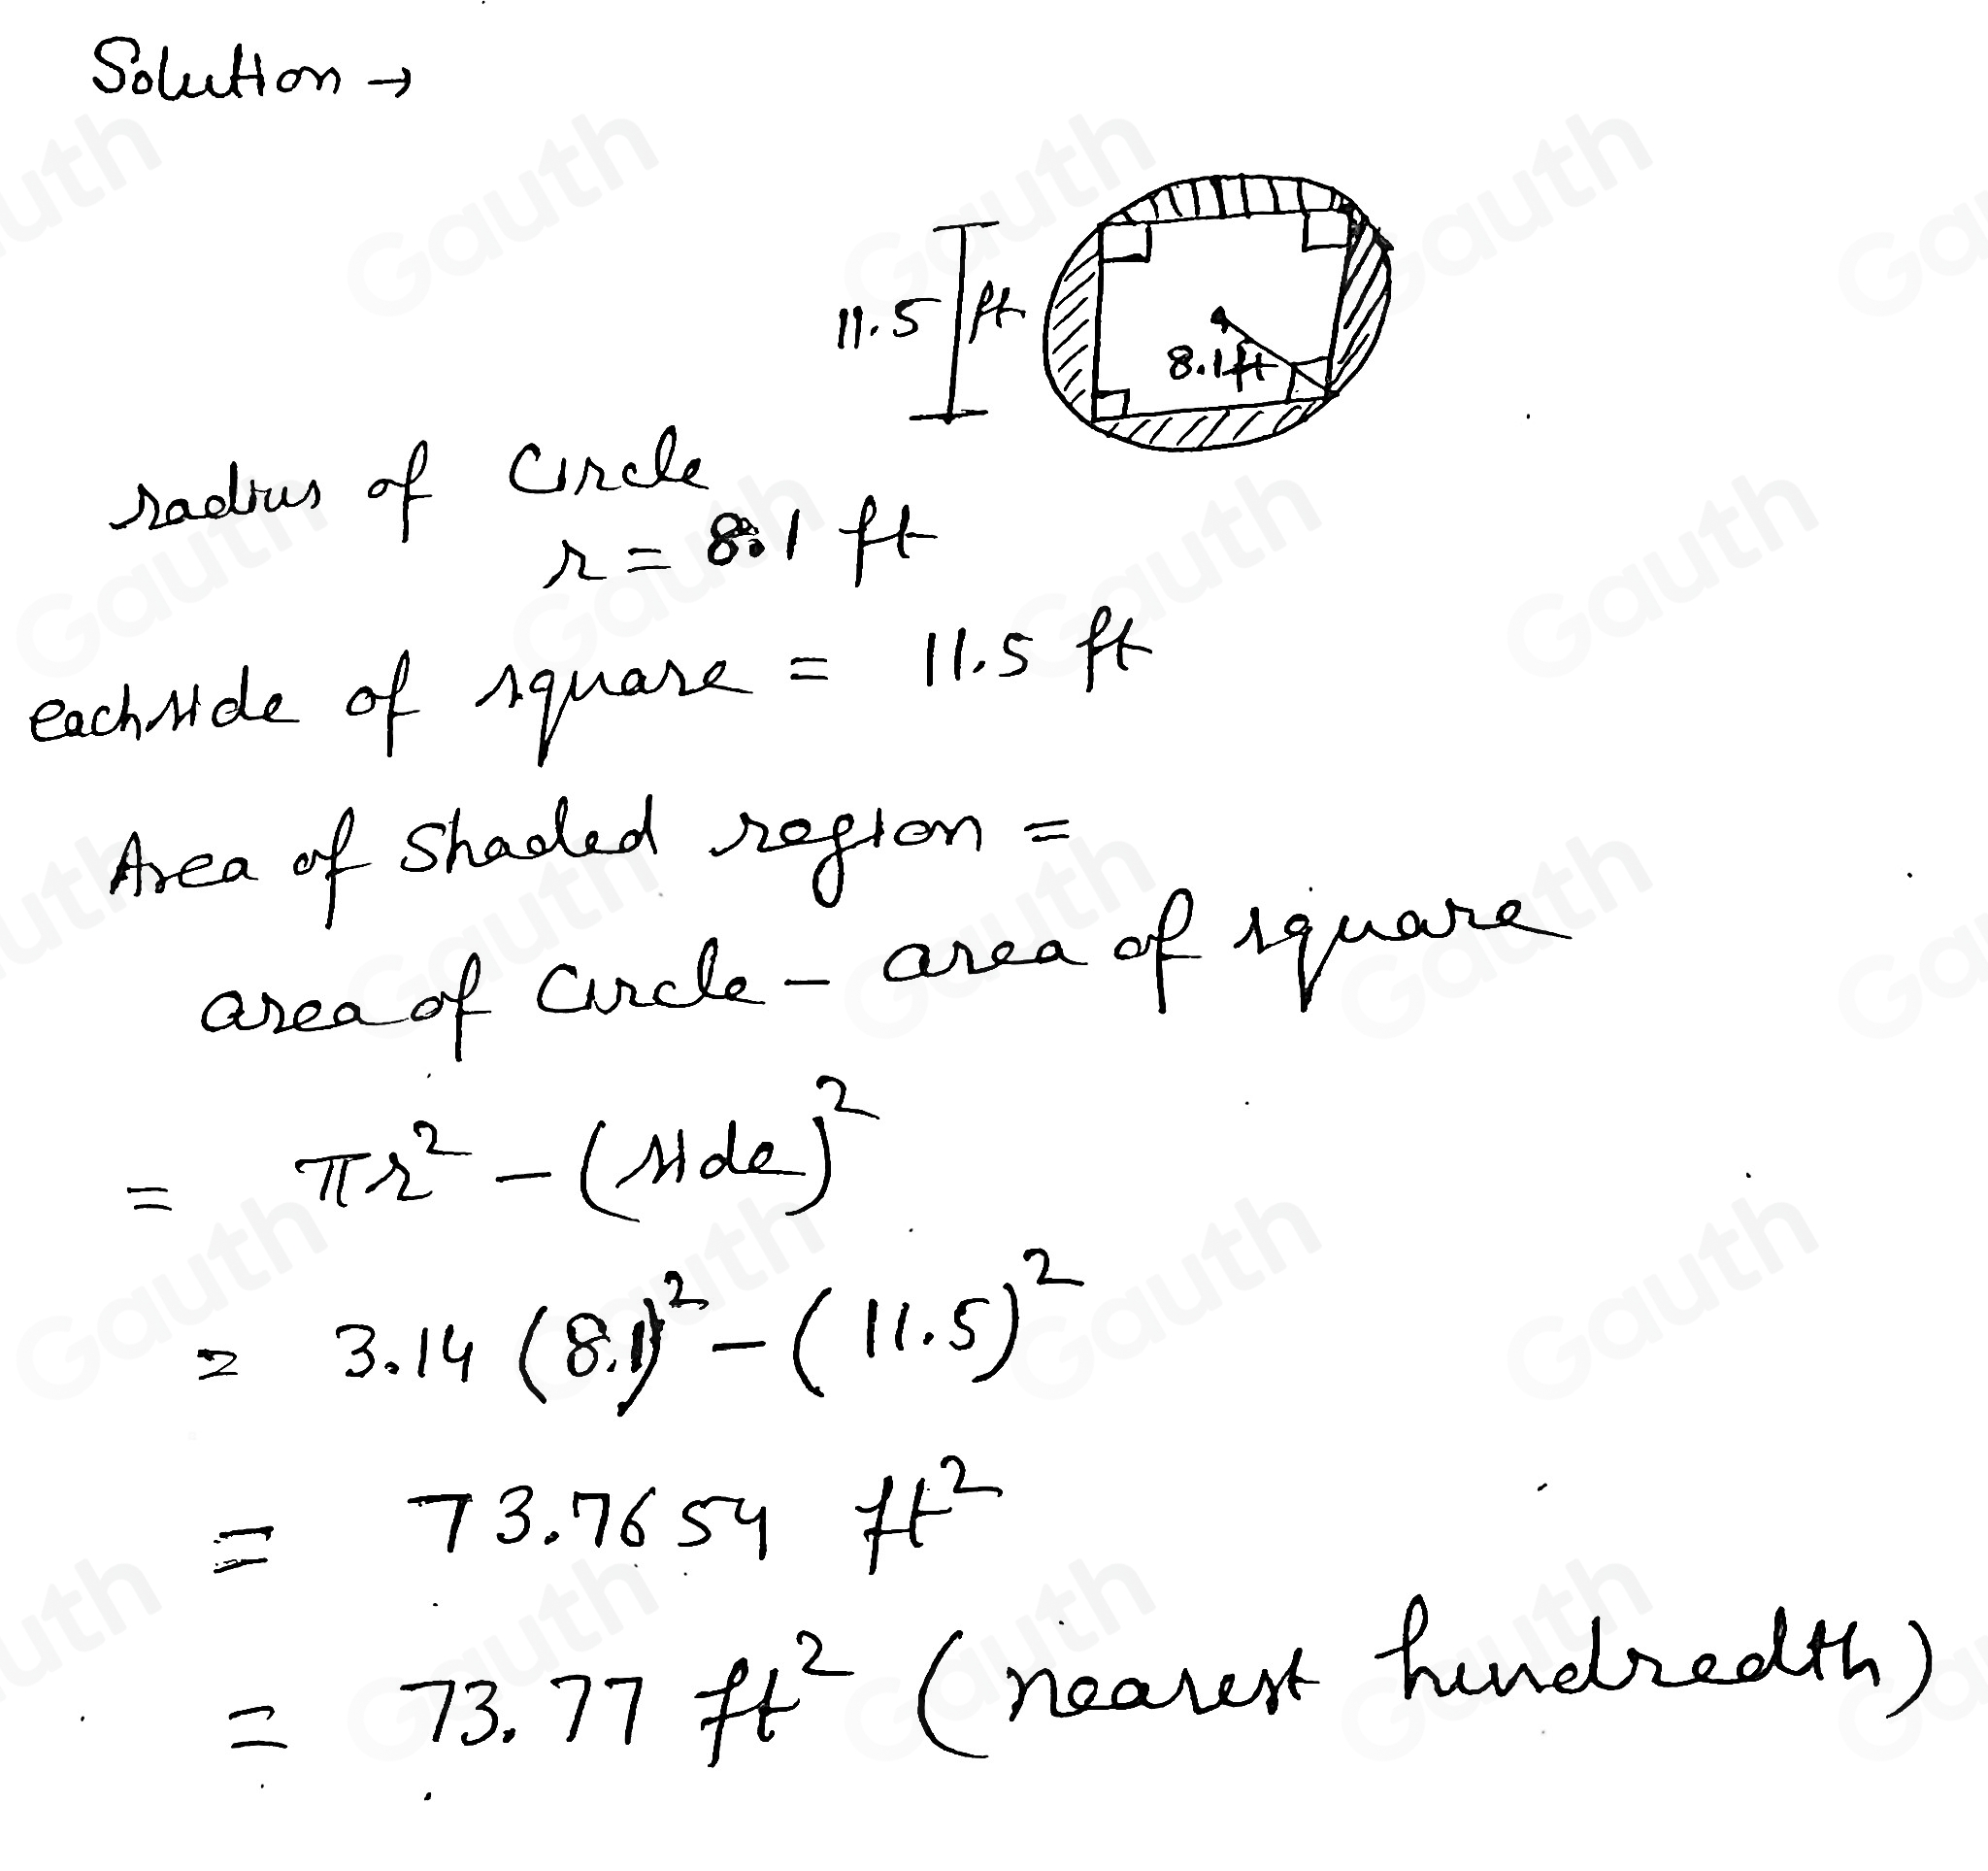 Solution →
11.5 ft
8.1ft
radius of Circle
r = 8.1 ft
each side of square = 11.5 ft
Area of Shaded region =
area of Circle - area of square
= πr² - (side)²
= 3.14 (8.1)² - (11.5)²
= 73.7654 ft²
= 73.77 ft² (nearest hundredth)
Gauth